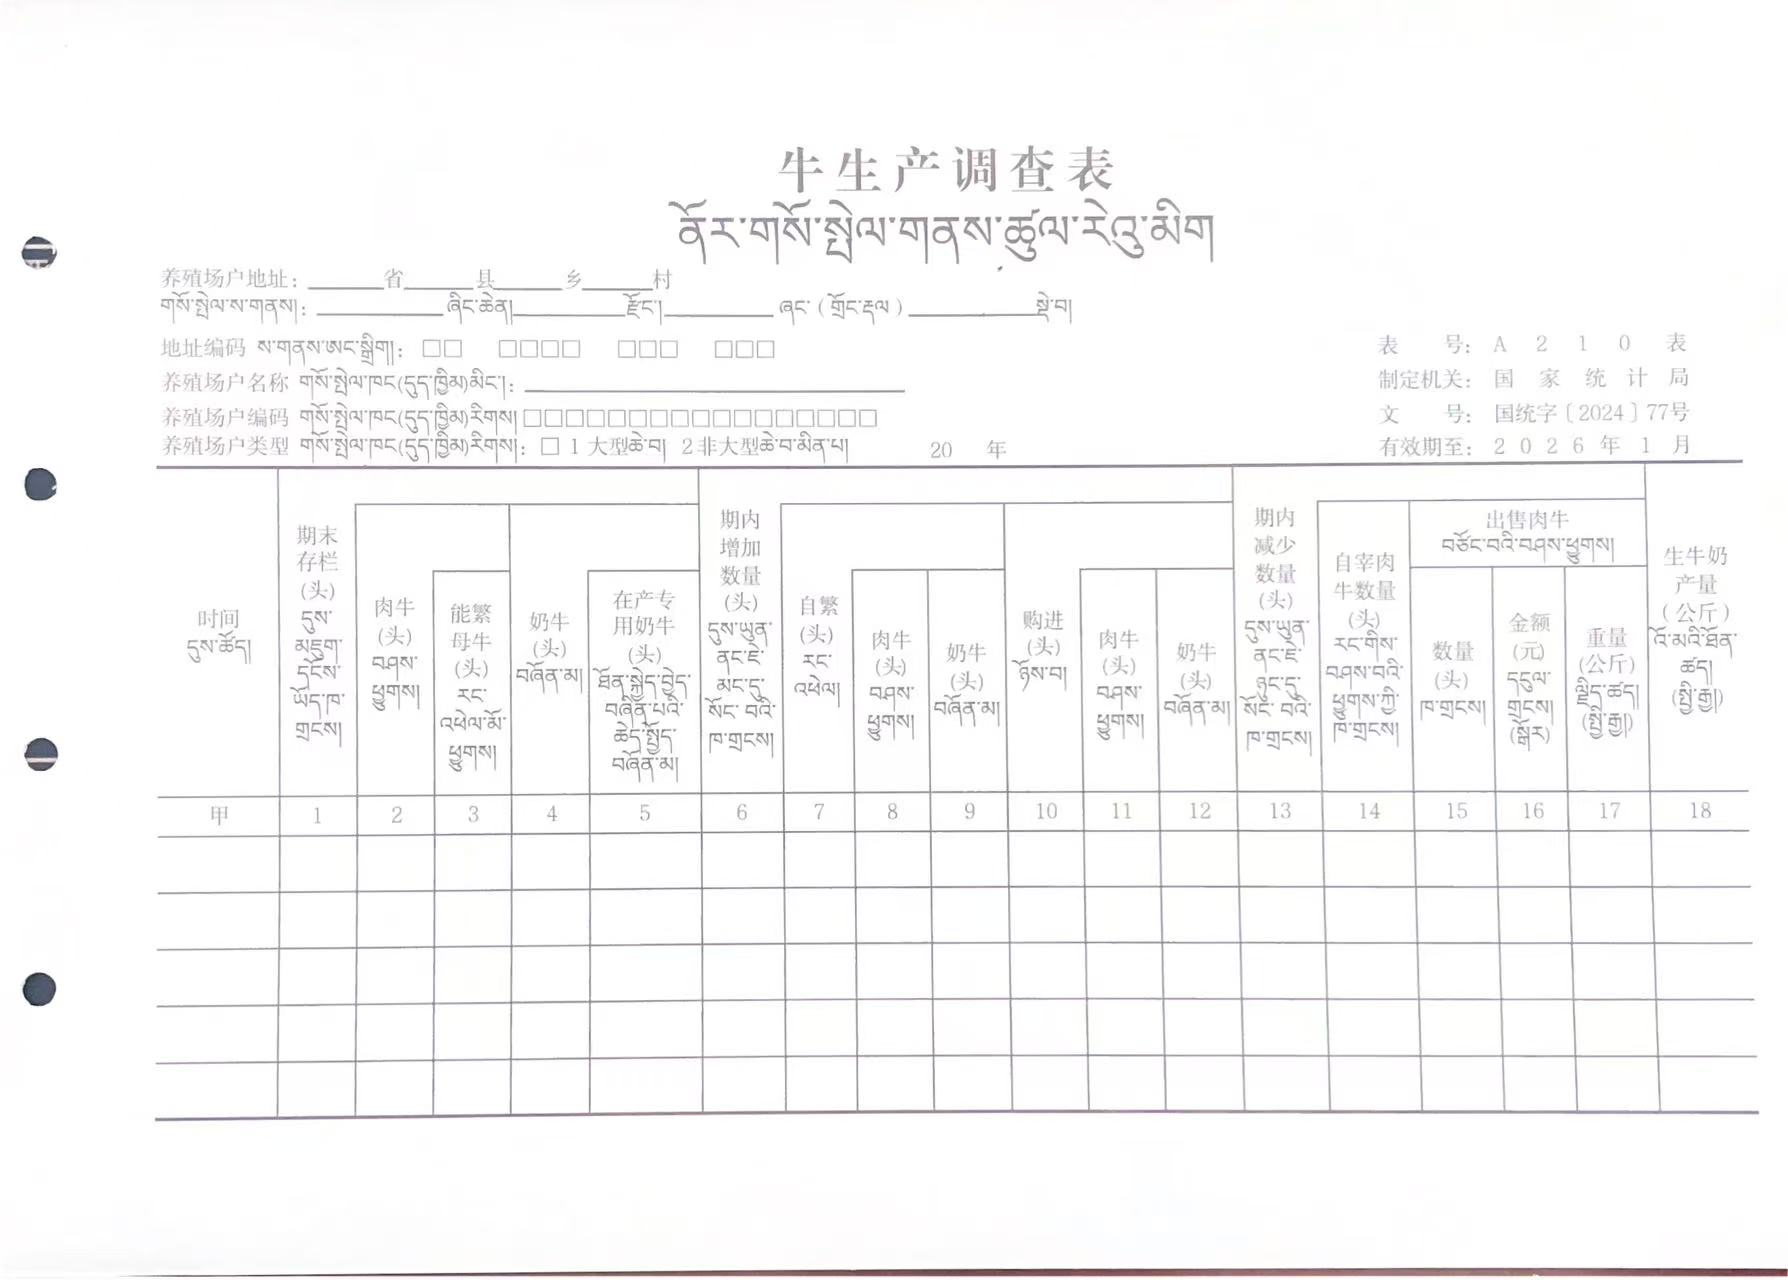 牛生产调查表
ནོར་གསོ་སྤེལ་གནས་ཚུལ་རེའུ་མིག
养殖场户地址：______省______县______乡______村
གསོ་སྤེལ་ས་གནས།：__________ཞིང་ཆེན།__________རྫོང་།__________ཞང་（གྲོང་རྡལ）__________སྡེ་བ།
地址编码 ས་གནས་ཨང་སྒྲིག།：□□ □□□□ □□□ □□□
养殖场户名称 གསོ་སྤེལ་ཁང(དུད་ཁྱིམ)མིང་།：__________
养殖场户编码 གསོ་སྤེལ་ཁང(དུད་ཁྱིམ)རིགས།□□□□□□□□□□□□□□□□□
养殖场户类型 གསོ་སྤེལ་ཁང(དུད་ཁྱིམ)རིགས།：□ 1 大型ཆེ་བ། 2非大型ཆེ་བ་མིན་པ།
20 年
表 号：A 2 1 0 表
制定机关：国 家 统 计 局
文 号：国统字〔2024〕77号
有效期至：2 0 2 6 年 1 月
时间
དུས་ཚོད།
期末
存栏
(头)
དུས་
མཇུག་
དངོས་
ཡོད་ཁ་
གྲངས།
肉牛
(头)
བཤས་
ཕྱུགས།
能繁
母牛
(头)
རང་
འཕེལ་མོ་
ཕྱུགས།
奶牛
(头)
བཞོན་མ།
在产专
用奶牛
(头)
ཐོན་སྐྱེད་བྱེད་
བཞིན་པའི་
ཆེད་སྤྱོད་
བཞོན་མ།
期内
增加
数量
(头)
དུས་ཡུན་
ནང་ཇེ་
མང་དུ་
སོང་བའི་
ཁ་གྲངས།
自繁
(头)
རང་
འཕེལ།
肉牛
(头)
བཤས་
ཕྱུགས།
奶牛
(头)
བཞོན་མ།
购进
(头)
ཉོས་བ།
肉牛
(头)
བཤས་
ཕྱུགས།
奶牛
(头)
བཞོན་མ།
期内
减少
数量
(头)
དུས་ཡུན་
ནང་ཇེ་
ཉུང་དུ་
སོང་བའི་
ཁ་གྲངས།
自宰肉
牛数量
(头)
རང་གིས་
བཤས་བའི་
ཕྱུགས་ཀྱི་
ཁ་གྲངས།
出售肉牛
བཙོང་བའི་བཤས་ཕྱུགས།
数量
(头)
ཁ་གྲངས།
金额
(元)
དངུལ་
གྲངས།
(སྒོར)
重量
(公斤)
ལྗིད་ཚད།
(སྤྱི་རྒྱ།)
生牛奶
产量
(公斤)
འོ་མའི་ཐོན་
ཚད།
(སྤྱི་རྒྱ།)
甲 1 2 3 4 5 6 7 8 9 10 11 12 13 14 15 16 17 18